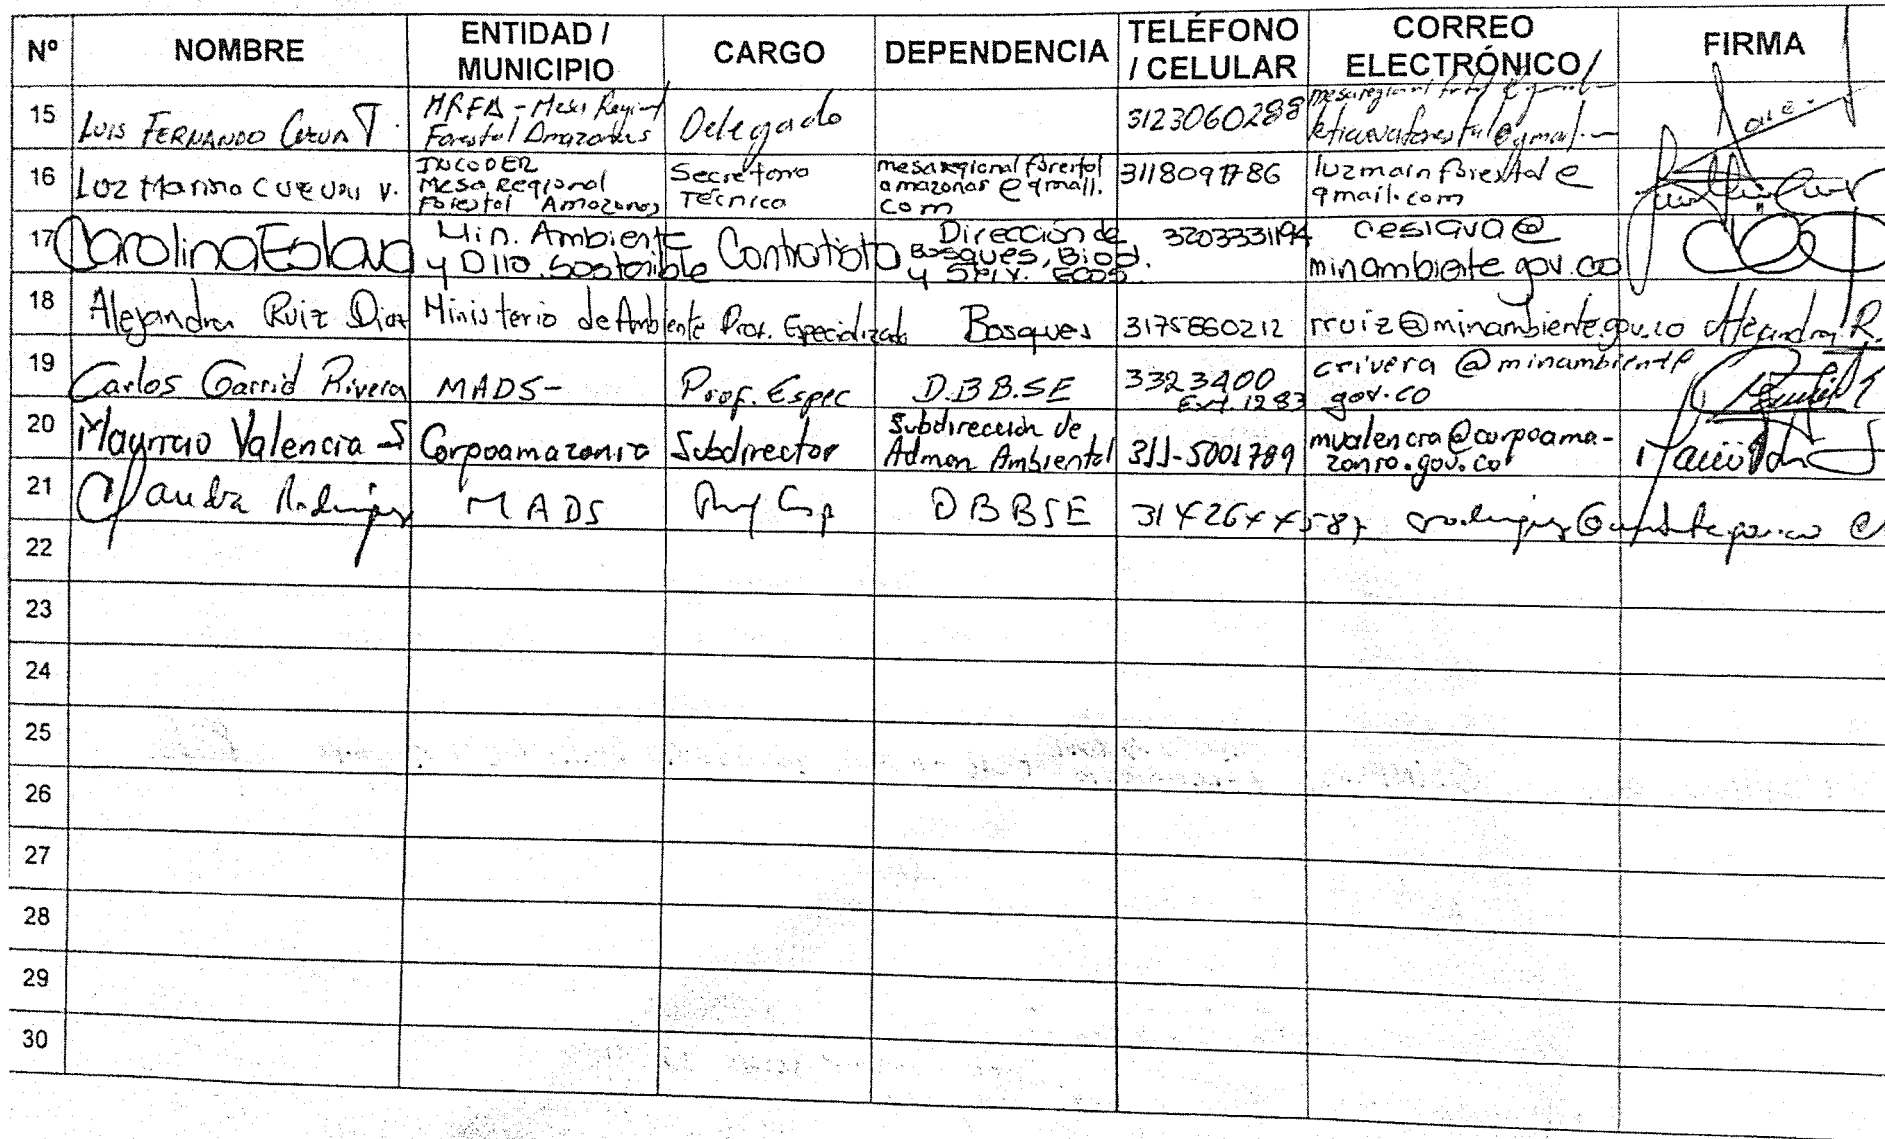 Nº NOMBRE ENTIDAD / MUNICIPIO CARGO DEPENDENCIA TELÉFONO / CELULAR CORREO ELECTRÓNICO FIRMA
15 LUIS FERNANDO T. MRFA - Mesa Regional Forestal Amazonas Delegado 3123060288
16 LUZ Marina CUEVAS V. INCODER Mesa Regional Forestal Amazonas Secretaria Técnica mesaregionalforestal amazonas @ gmail. com 3118091786 luzmainforestal@ gmail.com
17 Carolina Eslava Min. Ambiente y Dllo. Sostenible Contratista Dirección de Bosques, Biod. y Serv. Ecos. 3203331194 ceslava@ minambiente.gov.co
18 Alejandra Ruiz Diaz Ministerio de Ambiente Prof. Especializado Bosques 3175860212 rruiz@minambiente.gov.co Alejandra R.
19 Carlos Garrid Rivera MADS- Prof. Espec D.B.B.SE 3323400 Ext. 1283 crivera @minambiente gov.co
20 Mauricio Valencia S Corpoamazonia Subdirector Subdirección de Admon Ambiental 311-5001789 mvalencia@corpoama- zonia.gov.co
21 Claudia Rodriguez MADS Prof Esp DBBSE
22
23
24
25
26
27
28
29
30